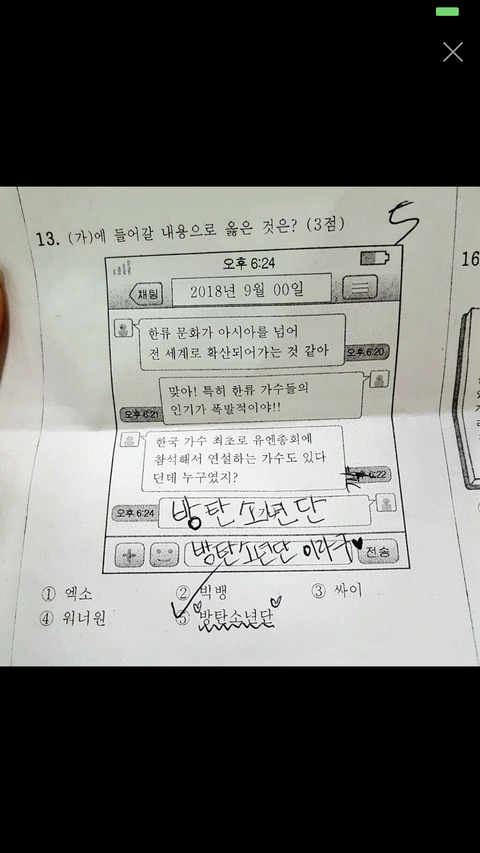 13. (가)에 들어갈 내용으로 옳은 것은? (3점)
5
오후 6:24
채팅
2018년 9월 00일
한류 문화가 아시아를 넘어
전 세계로 확산되어가는 것 같아
오후 6:20
맞아! 특히 한류 가수들의
인기가 폭발적이야!!
오후 6:21
한국 가수 최초로 유엔총회에
참석해서 연설하는 가수도 있다
던데 누구였지?
6:22
오후 6:24
방탄소년단
방탄소년단 이라구♥
전송
① 엑소 ② 빅뱅 ③ 싸이
④ 워너원 ⑤ 방탄소년단
16